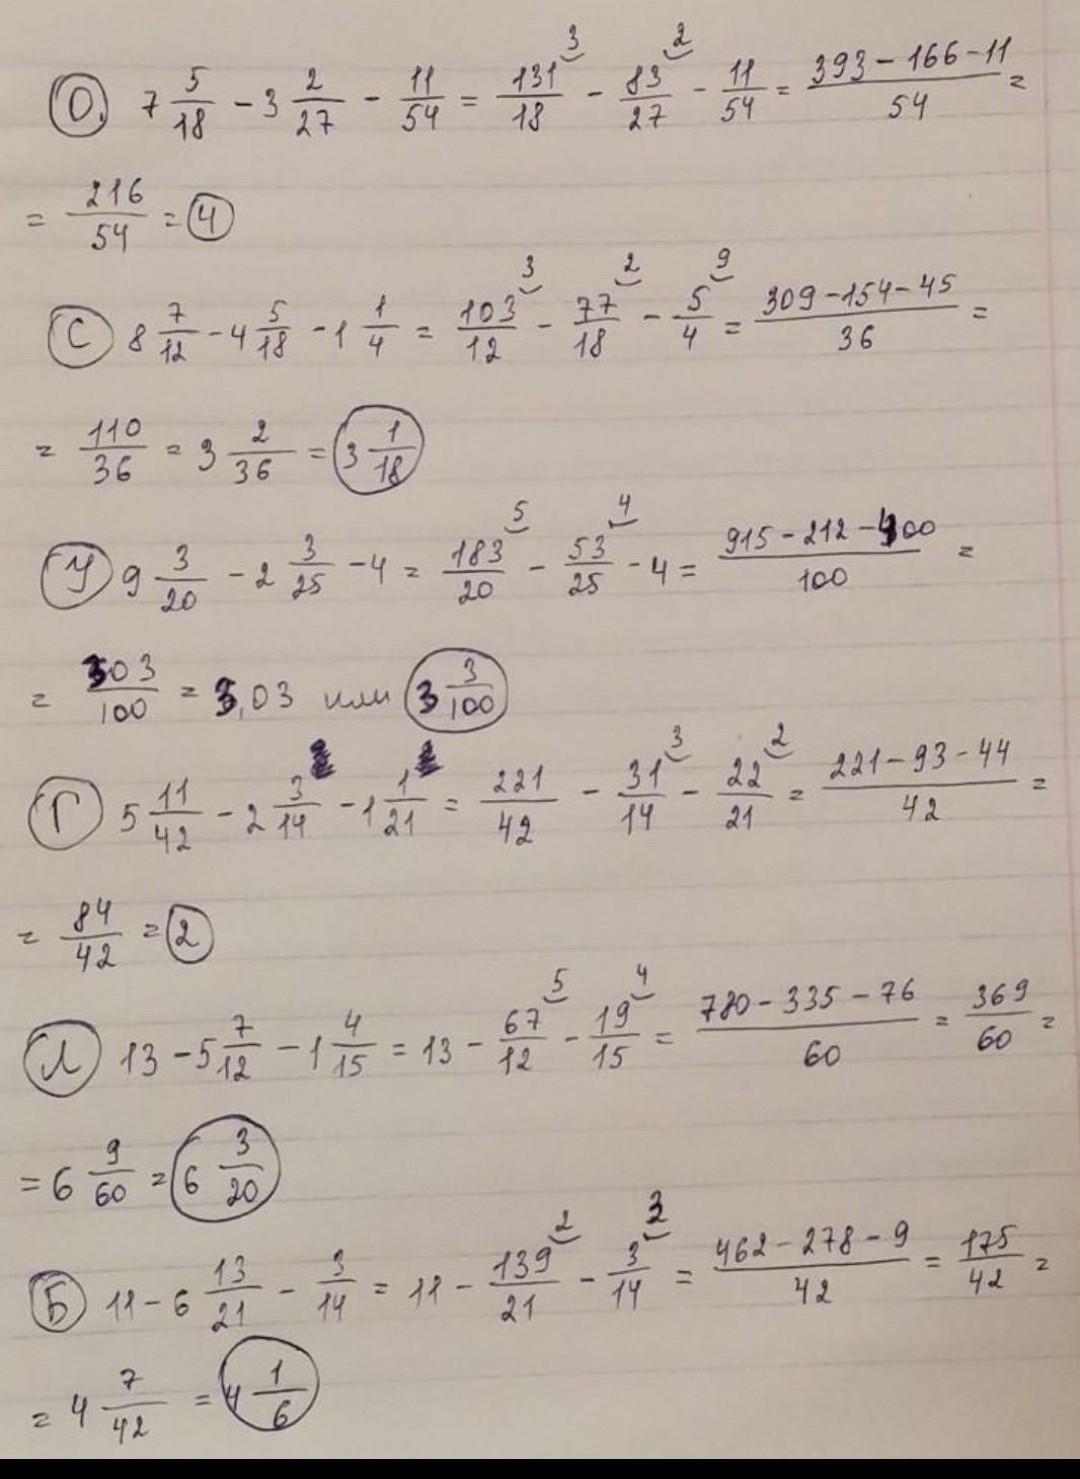 О. 7 5/18 - 3 2/27 - 11/54 = 131/18 ³ - 83/27 ² - 11/54 = (393 - 166 - 11)/54 =
= 216/54 = 4
С 8 7/12 - 4 5/18 - 1 1/4 = 103/12 ³ - 77/18 ² - 5/4 ⁹ = (309 - 154 - 45)/36 =
= 110/36 = 3 2/36 = 3 1/18
У 9 3/20 - 2 3/25 - 4 = 183/20 ⁵ - 53/25 ⁴ - 4 = (915 - 212 - 400)/100 =
= 303/100 = 3,03 или 3 3/100
Г 5 11/42 - 2 3/14 - 1 1/21 = 221/42 - 31/14 ³ - 22/21 ² = (221 - 93 - 44)/42 =
= 84/42 = 2
Л 13 - 5 7/12 - 1 4/15 = 13 - 67/12 ⁵ - 19/15 ⁴ = (780 - 335 - 76)/60 = 369/60 =
= 6 9/60 = 6 3/20
Б 11 - 6 13/21 - 3/14 = 11 - 139/21 ² - 3/14 ³ = (462 - 278 - 9)/42 = 175/42 =
= 4 7/42 = 4 1/6